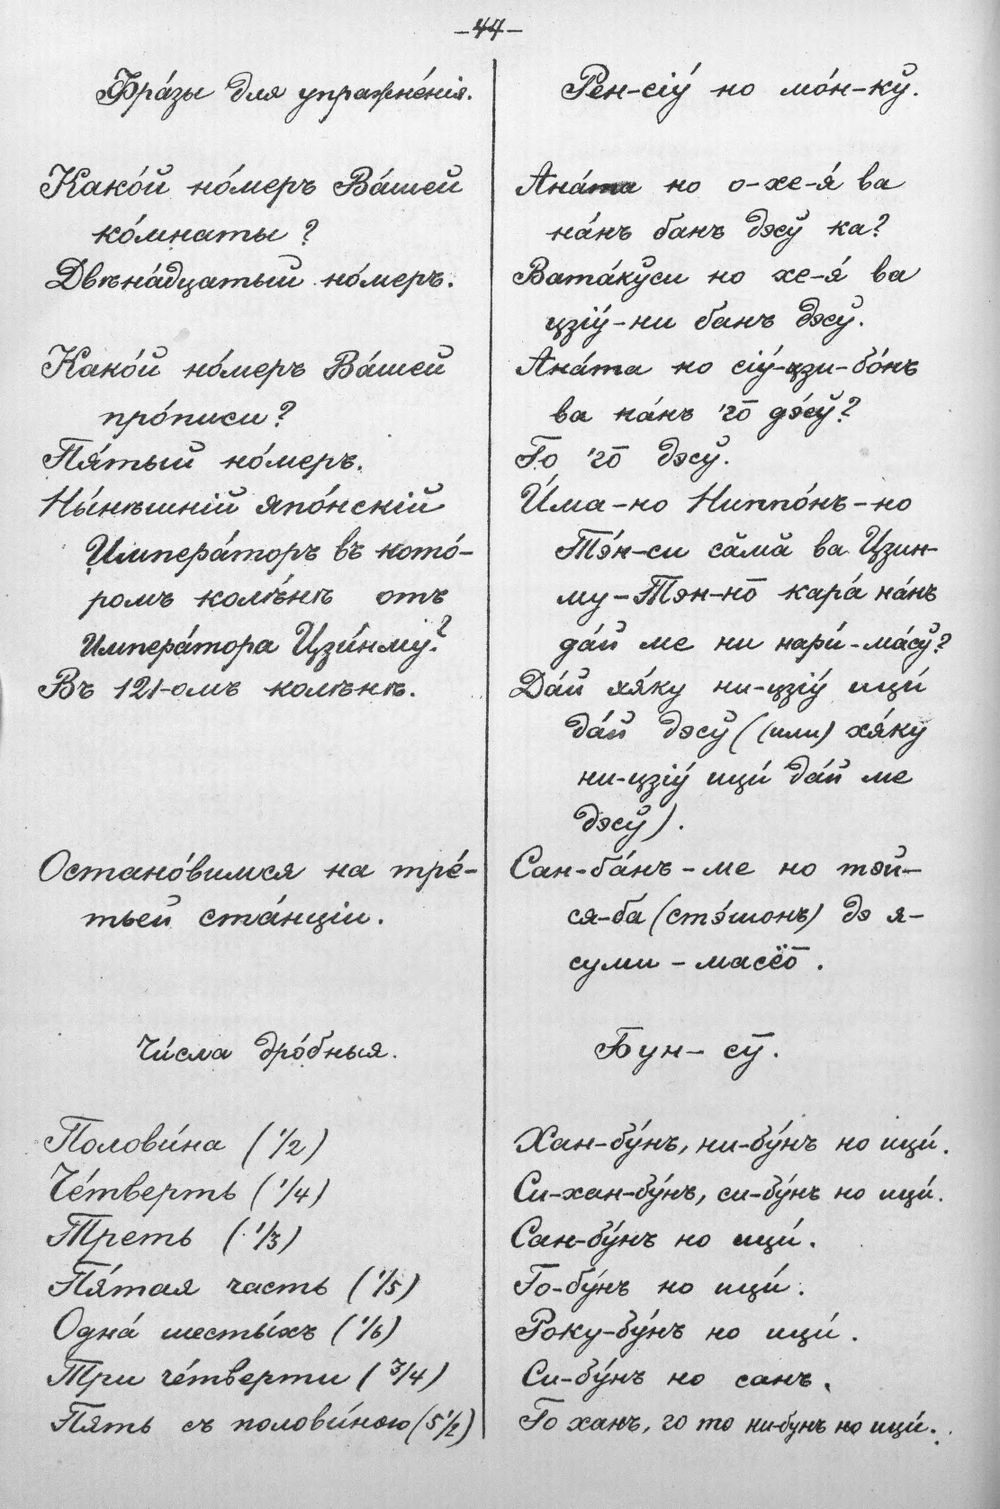 –44–
Фра́зы для упражне́нія.
Какой но́меръ Ва́шей
ко́мнаты?
Двѣна́дцатый но́меръ.
Како́й но́меръ Ва́шей
про́писи?
Пя́тый но́меръ.
Ны́нѣшній япо́нскій
Импера́торъ въ кото́-
ромъ колѣ́нѣ отъ
Импера́тора Цзи́нму?
Въ 121-омъ колѣнѣ.
Остано́вимся на тре́-
тьей ста́нціи.
Чи́сла дро́бныя.
Полови́на (1/2)
Че́тверть (1/4)
Треть (1/3)
Пя́тая часть (1/5)
Одна́ шесты́хъ (1/6)
Три че́тверти (3/4)
Пять съ полови́ною (5 1/2)
Рен-сіу́ но мо́н-кў.
Ана́та но о-хе-я́ ва
на́нъ банъ дэсў ка?
Вата́кўси но хе-я́ ва
цзіу́-ни банъ дэсў.
Ана́та но сіу́-цзи-бо́нъ
ва на́нъ 'го̄ дэ́сў?
Го 'го̄ дэсў.
И́ма-но Ниппо́нъ-но
Тэ́н-си сӑмӑ ва Цзин-
му-Тэн-но̄ кара́ на́нъ
да́й ме ни нари́-ма́сў?
Да́й хя́ку ни-цзіу́ ици́
да́й дэсў ((или) хя́ку
ни-цзіу́ ици́ да́й ме
дэсў).
Сан-ба́нъ-ме но тэй-
ся-ба́ (стэ́шонъ) дэ я-
суми-масё̄.
Бун-сӯ.
Хан-бу́нъ, ни-бу́нъ но ици́.
Си-хан-бу́нъ, си-бу́нъ но ици́.
Сан-бу́нъ но ици́.
Го-бу́нъ но ици́.
Року-бу́нъ но ици́.
Си-бу́нъ но санъ.
Го ханъ, го то ни-бунъ но ици́.